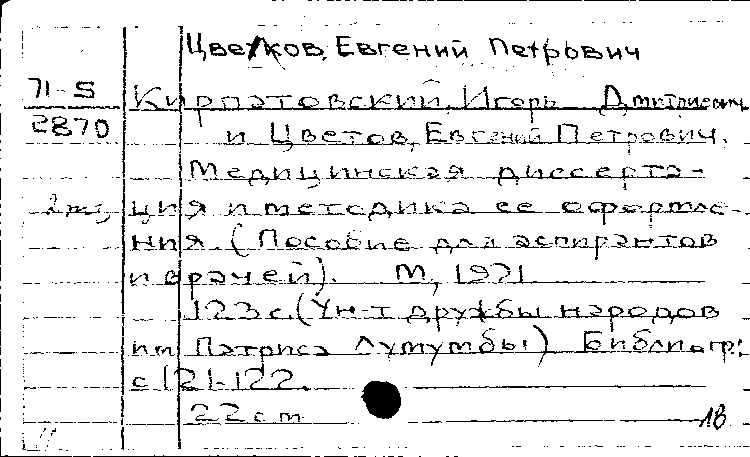 Цветков, Евгений Петрович
71-5
2870
Кирпатовский, Игорь Дмитриевич
и Цветов, Евгений Петрович.
Медицинская диссерта-
2 экз
ция и методика ее оформле-
ния. (Пособие для аспирантов
и врачей). М, 1971
123 с. (Ун-т дружбы народов
им Патриса Лумумбы) Библиогр:
с 121-122.
22 см
18